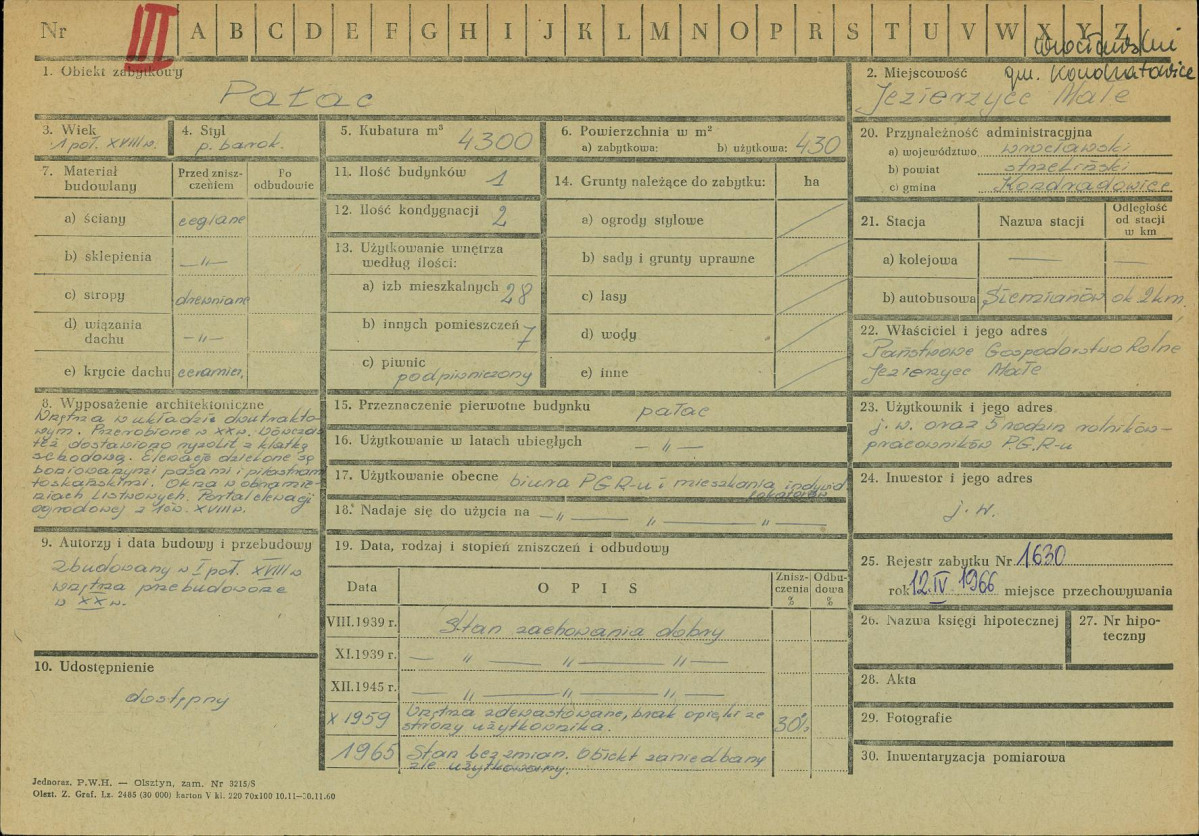 Nr III A B C D E F G H I J K L M N O P R S T U V W X Y Z
wrocławski
gm. Kondratowice
1. Obiekt zabytkowy
Pałac
2. Miejscowość
Jezierzyce Małe
3. Wiek
1 poł. XVIII w.
4. Styl
p. barok.
5. Kubatura m³ 4300
6. Powierzchnia w m²
a) zabytkowa: b) użytkowa: 430
20. Przynależność administracyjna
a) województwo wrocławski
b) powiat strzeliński
c) gmina Kondradowice
7. Materiał budowlany
Przed znisz-
czeniem
Po
odbudowie
a) ściany ceglane
b) sklepienia —„—
c) stropy drewniane
d) wiązania
dachu —„—
e) krycie dachu ceramicz.
11. Ilość budynków 1
12. Ilość kondygnacji 2
13. Użytkowanie wnętrza
według ilości:
a) izb mieszkalnych 28
b) innych pomieszczeń 7
c) piwnic
podpiwniczony
14. Grunty należące do zabytku: ha
a) ogrody stylowe
b) sady i grunty uprawne
c) lasy
d) wody
e) inne
21. Stacja Nazwa stacji
Odległość
od stacji
w km
a) kolejowa — —
b) autobusowa Sieminanów ok 2km.
22. Właściciel i jego adres
Państwowe Gospodarstwo Rolne
Jezierzyce Małe
8. Wyposażenie architektoniczne
Wnętrza w układzie dwutrakto-
wym. Przerobione w XX w. Wówczas
też dostawiono ryzolit z klatką
schodową. Elewacje dzielone są
boniowanymi pasami i pilastrami
toskańskimi. Okna w obramie-
niach listwowych. Portal elewacji
ogrodowej z 1 ów. XVIII w.
15. Przeznaczenie pierwotne budynku pałac
16. Użytkowanie w latach ubiegłych —„—
17. Użytkowanie obecne biura PGR-u i mieszkania indywid.
lokatorów
18. Nadaje się do użycia na —„— „ „
23. Użytkownik i jego adres
j. w. oraz 5 rodzin rolników-
pracowników P.G.R-u
24. Inwestor i jego adres
j. w.
9. Autorzy i data budowy i przebudowy
zbudowany w I poł. XVIII w
wnętrza przebudowane
w XX w.
10. Udostępnienie
dostępny
19. Data, rodzaj i stopień zniszczeń i odbudowy
Data OPIS
Znisz-
czenia
%
Odbu-
dowa
%
VIII.1939 r. Stan zachowania dobry
XI.1939 r. — „ — „ — „ —
XII.1945 r. — „ — „ — „ —
X 1959 Wnętrza zdewastowane, brak opieki ze
strony użytkownika. 30%
1965 Stan bez zmian. Obiekt zaniedbany
źle użytkowany.
25. Rejestr zabytku Nr 1630
rok 12.IV.1966 miejsce przechowywania
26. Nazwa księgi hipotecznej
27. Nr hipo-
teczny
28. Akta
29. Fotografie
30. Inwentaryzacja pomiarowa
Jednoraz. P.W.H. — Olsztyn, zam. Nr 3215/S
Olszt. Z. Graf. Lz. 2485 (30 000) karton V kl. 220 70x100 10.11—30.11.60